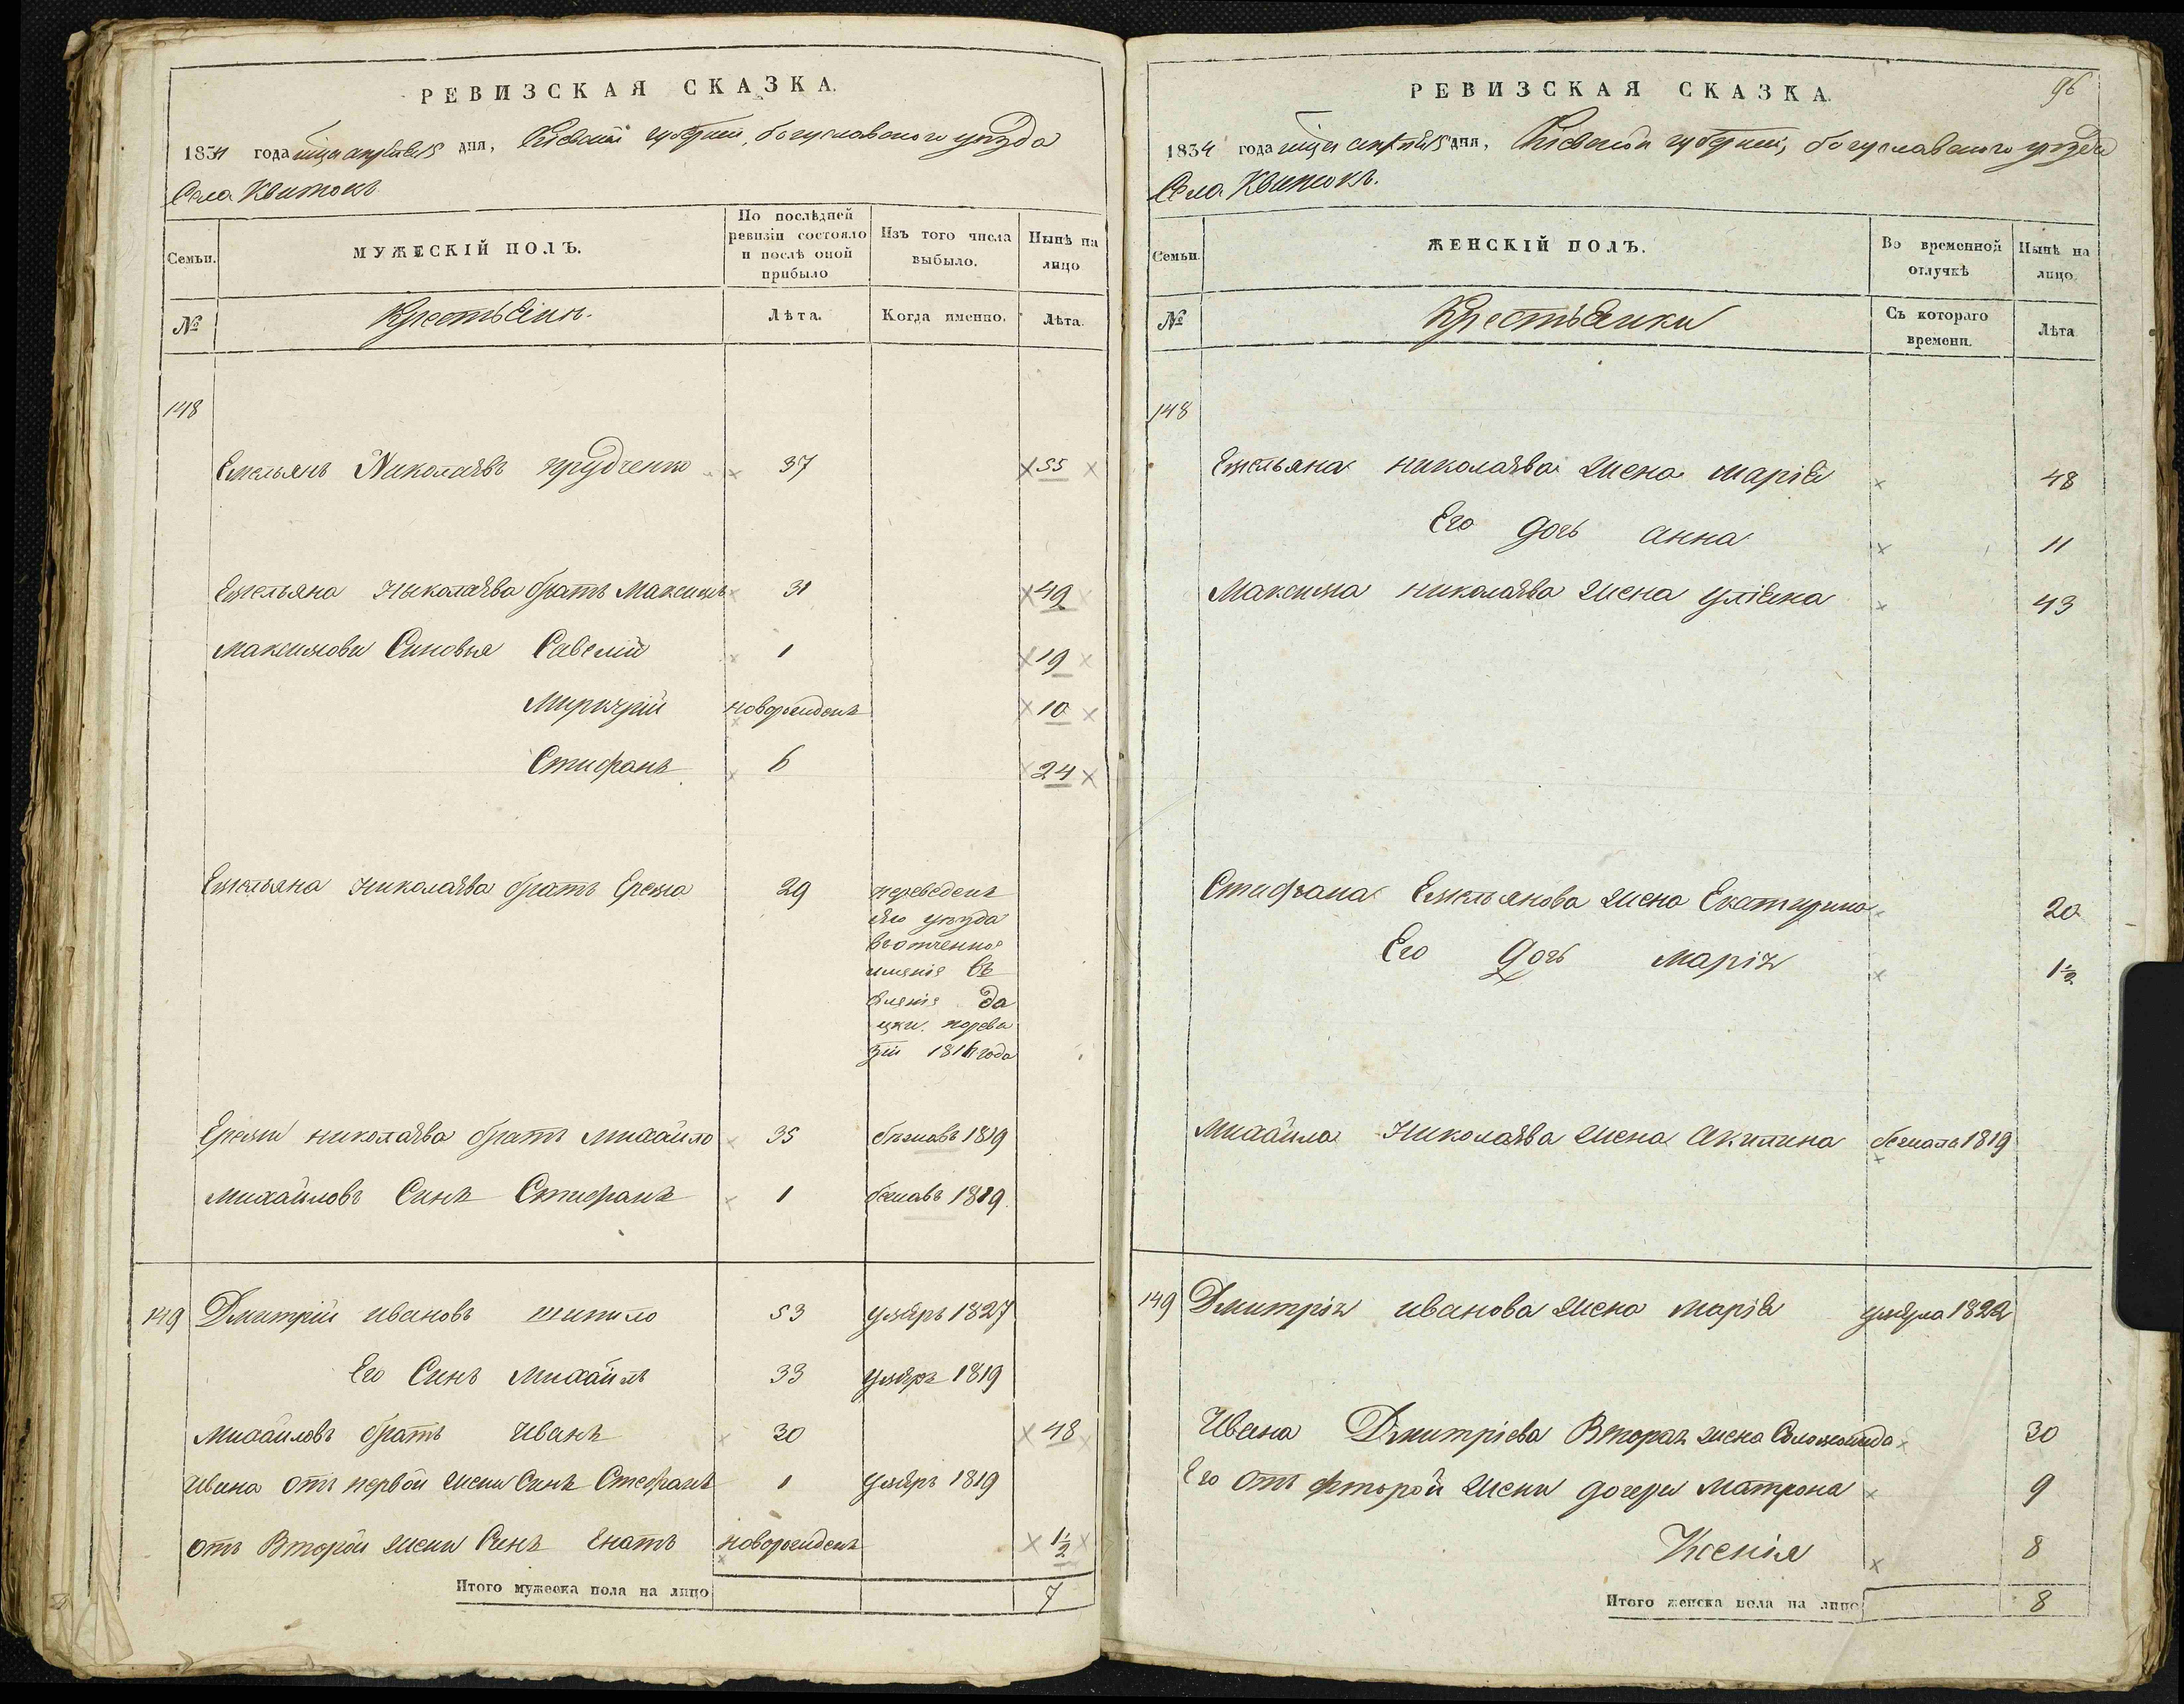 РЕВИЗСКАЯ СКАЗКА.
1834 года мца апреля 15 дня, Кіевской губерніи, богуславского уезда
Села Квитокъ
Семьи.
МУЖЕСКІЙ ПОЛЪ.
По послѣдней ревизіи состояло и послѣ оной прибыло
Изъ того числа выбыло.
Нынѣ на лицо
№
Крестьяни.
Лѣта.
Когда именно.
Лѣта.
148
Емельянъ Николаевъ прудченко 37 55
Емельяна николаева братъ Максимъ 31 49
максимови Синовья Савелий 1 19
новорожденъ 10
Стифанъ 6 24
Емельяна николаева братъ Ерема 29 переведенъ
уезда
имения
1816 года
Еремы николаева братъ михайло 35 бежавъ 1819
михайловъ Синъ Стифанъ 1 бежавъ 1819
149 Дмитрій ивановъ шипило 53 умеръ 1827
Его Синъ михайлъ 33 умеръ 1819
михайловъ братъ иванъ 30 48
ивана отъ первой жени Синъ Стефанъ 1 умеръ 1819
отъ Второй жени Синъ новорожденъ 1½
Итого мужеска пола на лицо 7
РЕВИЗСКАЯ СКАЗКА.
96
1834 года мца апреля 15 дня, Кіевской губерніи, богуславского уезда
Села Квитокъ.
Семьи.
ЖЕНСКІЙ ПОЛЪ.
Во временной отлучкѣ
Нынѣ на лицо.
№
Крестьянки
Съ котораго времени.
Лѣта
148
Емельяна николаева жена марія 48
Его дочь анна 11
Максима николаева жена уліяна 43
Стифана Емельянова жена Екатерина 20
Его дочь марія 1½
михайла николаева жена акилина бежала 1819
149 Дмитрія иванова жена марія умерла 1822
Ивана Дмитріева Вторая жена 30
Его отъ фторой жени дочери матрона 9
Ксенія 8
Итого женска пола на лицо 8